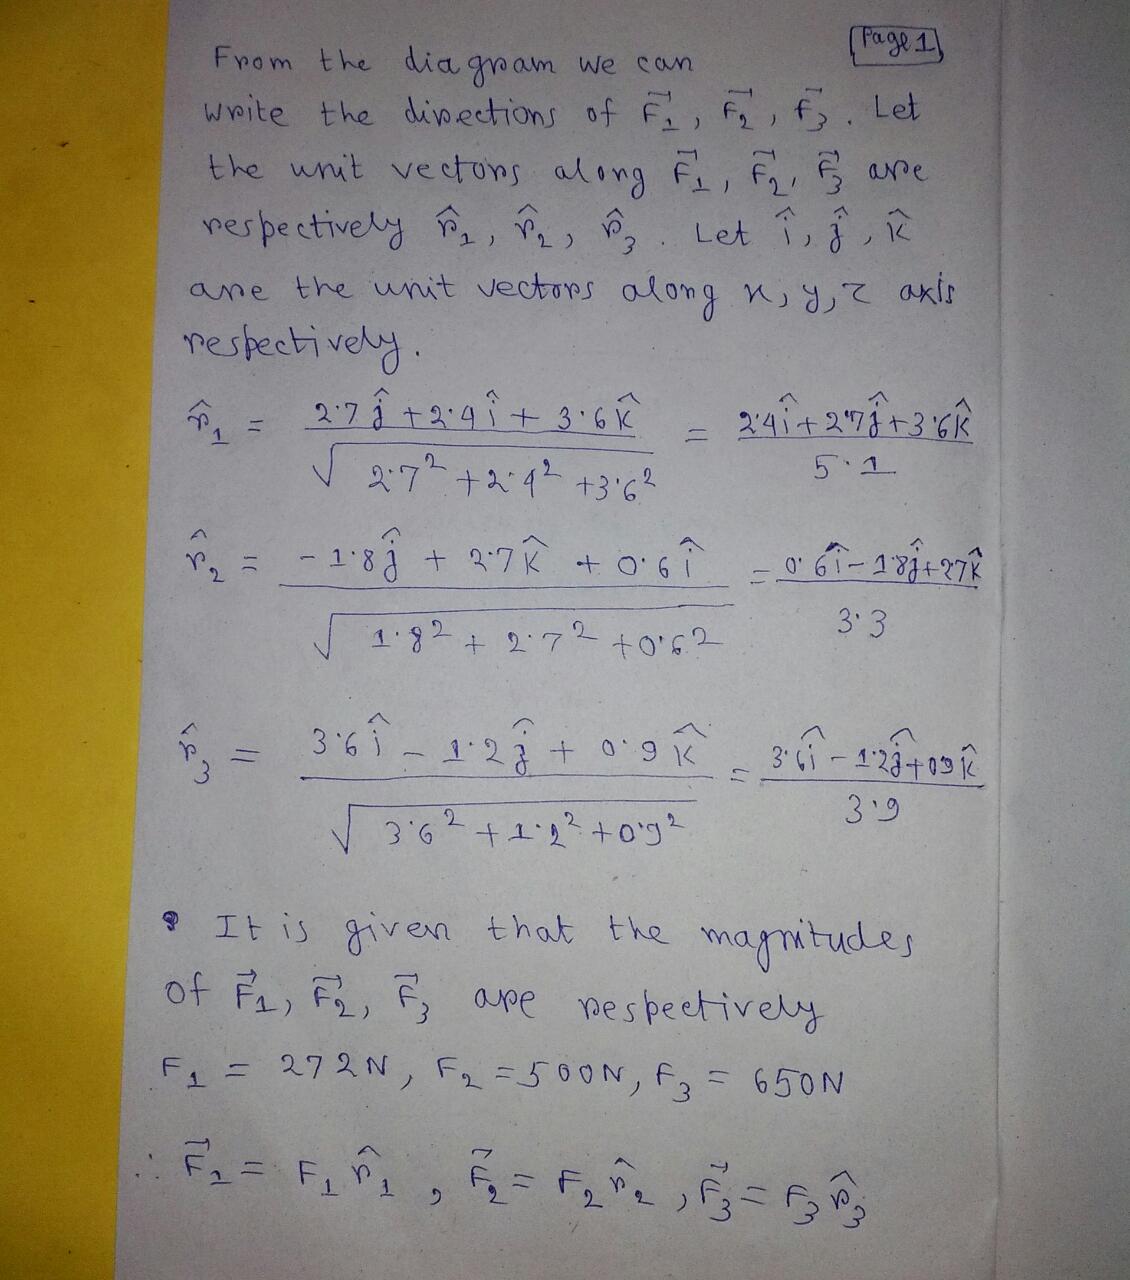 Page 1
From the diagram we can
write the directions of F⃗₁, F⃗₂, F⃗₃. Let
the unit vectors along F⃗₁, F⃗₂, F⃗₃ are
respectively r̂₁, r̂₂, r̂₃. Let î, ĵ, k̂
are the unit vectors along x, y, z axis
respectively.
r̂₁ = (2.7 ĵ + 2.4 î + 3.6 k̂) / √(2.7² + 2.4² + 3.6²) = (2.4 î + 2.7 ĵ + 3.6 k̂) / 5.1
r̂₂ = (-1.8 ĵ + 2.7 k̂ + 0.6 î) / √(1.8² + 2.7² + 0.6²) = (0.6 î - 1.8 ĵ + 2.7 k̂) / 3.3
r̂₃ = (3.6 î - 1.2 ĵ + 0.9 k̂) / √(3.6² + 1.2² + 0.9²) = (3.6 î - 1.2 ĵ + 0.9 k̂) / 3.9
• It is given that the magnitudes
of F⃗₁, F⃗₂, F⃗₃ are respectively
F₁ = 272 N, F₂ = 500 N, F₃ = 650 N
∴ F⃗₁ = F₁ r̂₁, F⃗₂ = F₂ r̂₂, F⃗₃ = F₃ r̂₃